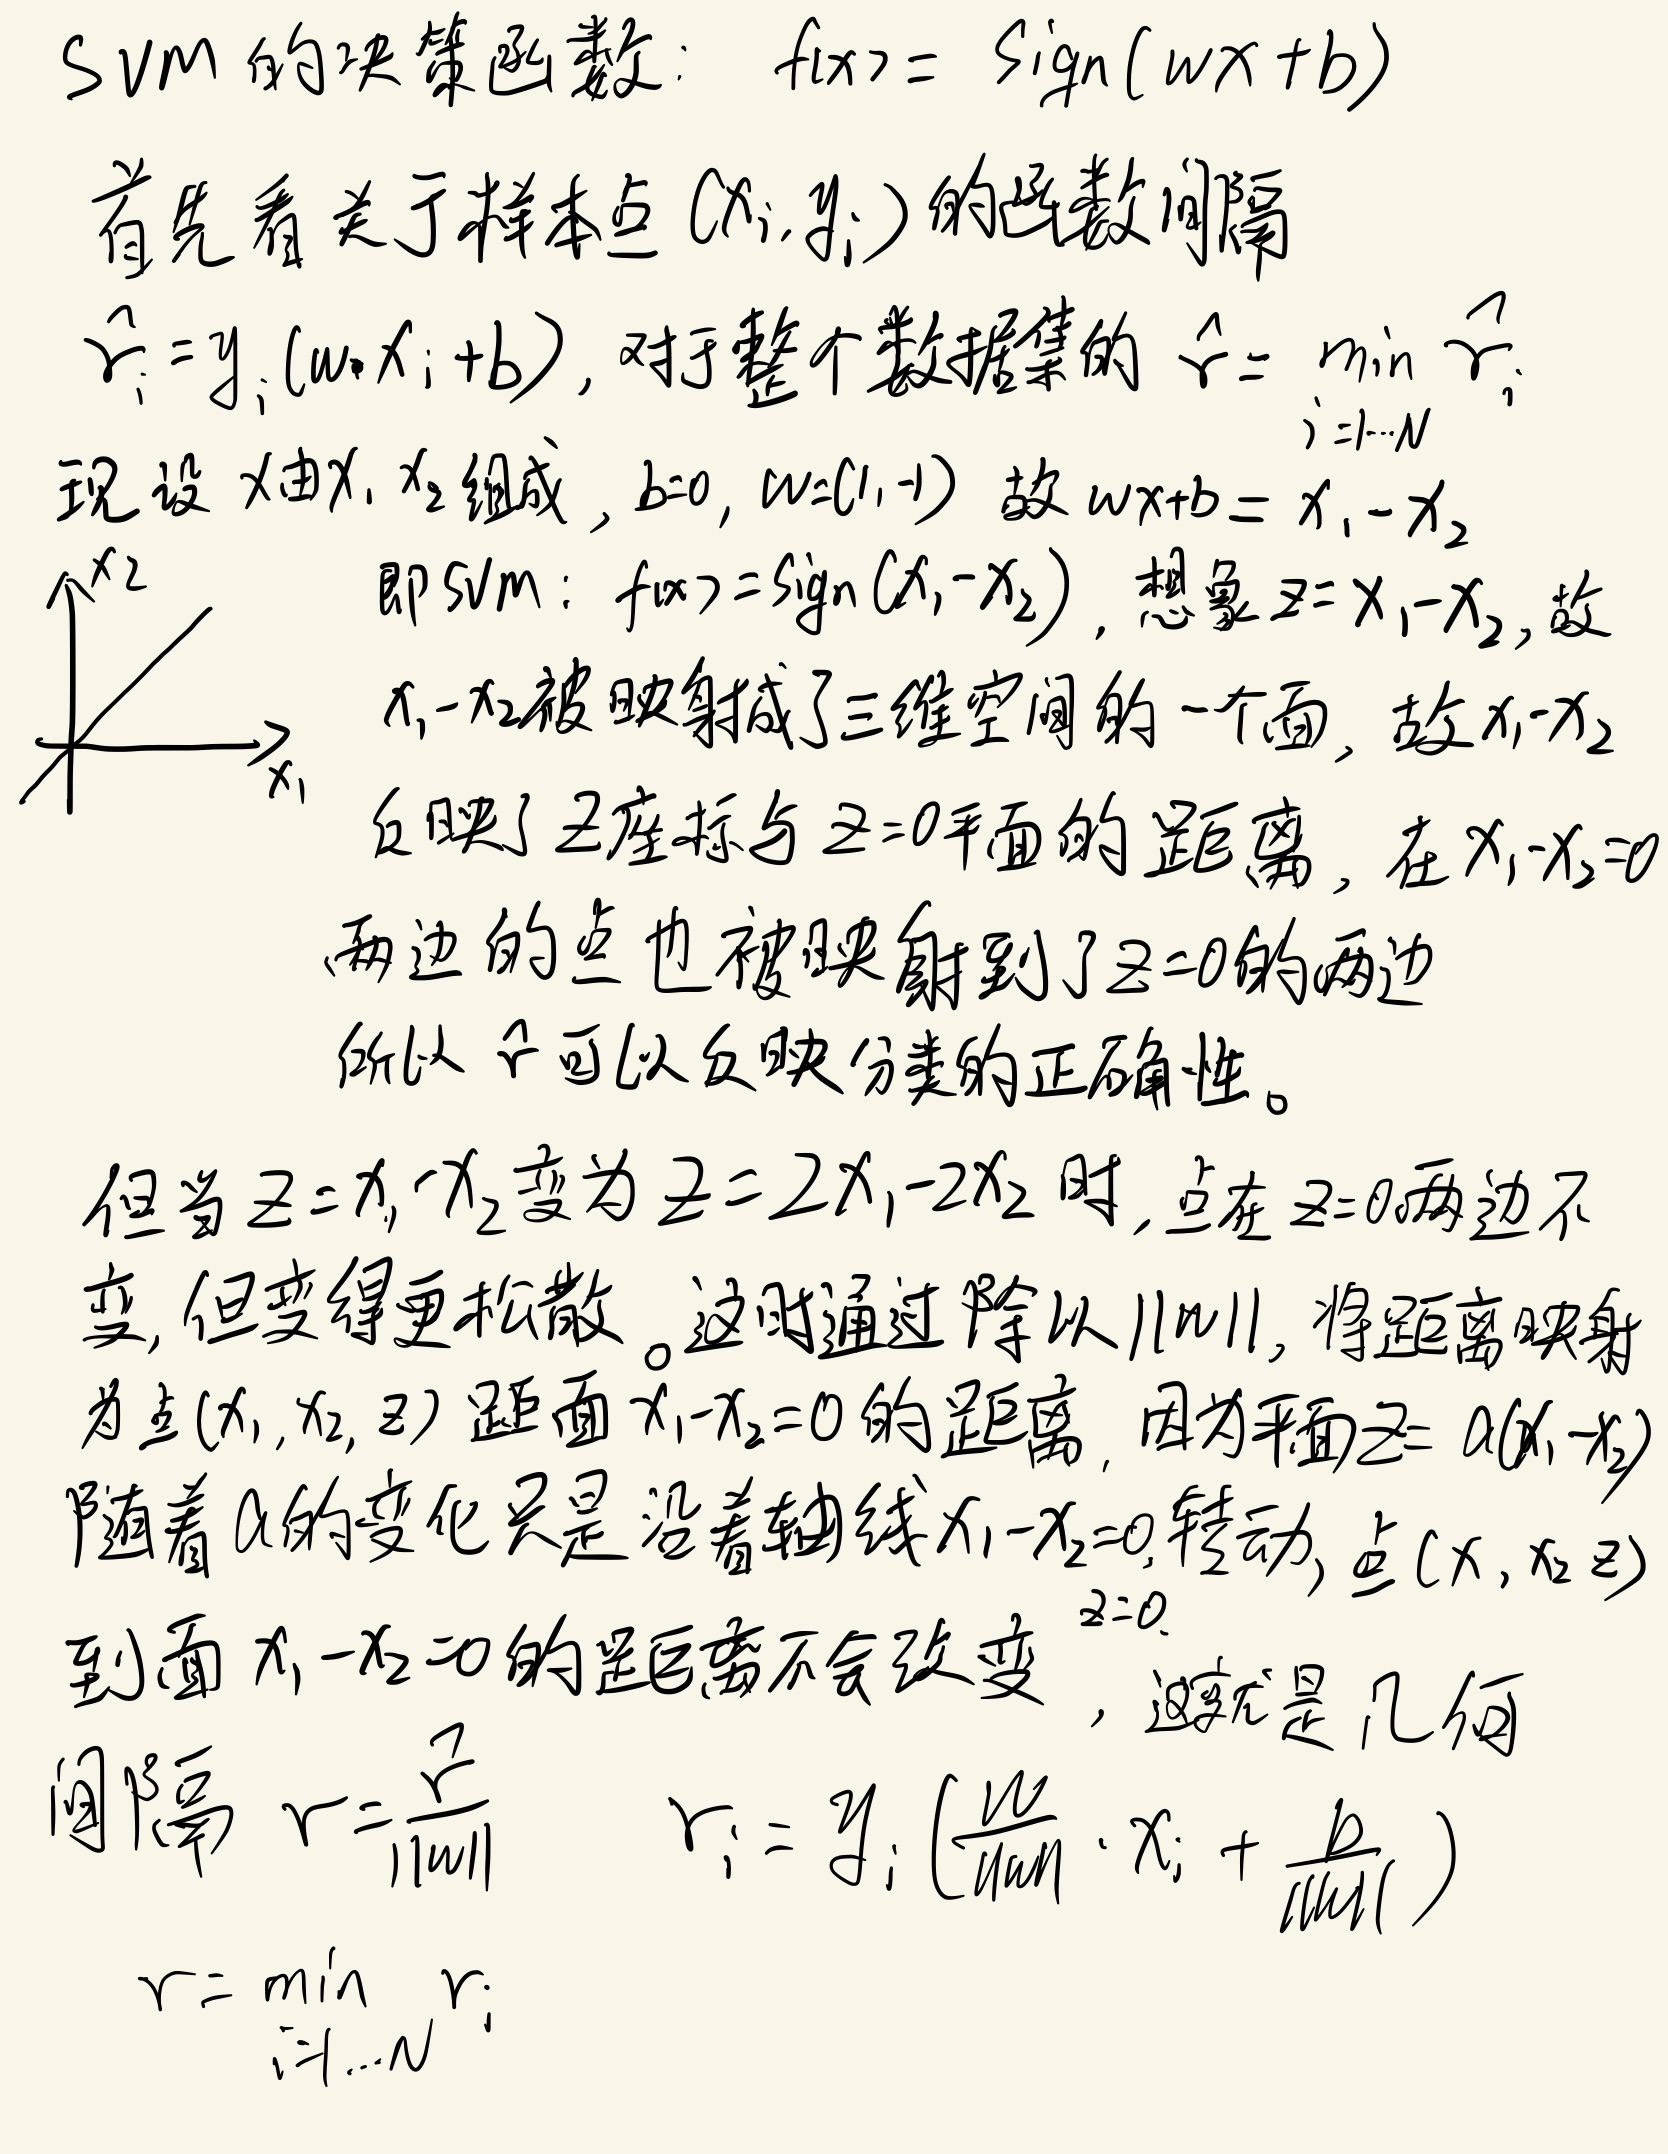 SVM的决策函数: f(x)= Sign(wx+b)
首先看关于样本点(xi,yi)的函数间隔
r̂i=yi(w•xi+b),对于整个数据集的 r̂= min r̂i
i=1…N
现设 x由x1 x2组成, b=0, w=(1,-1) 故 wx+b= x1-x2
x2
即SVM: f(x)=Sign(x1-x2), 想象 z=x1-x2,故
x1-x2被映射成了三维空间的一个面, 故x1-x2
x1
反映了 z座标与 z=0平面的距离, 在 x1-x2=0
两边的点也被映射到了z=0的两边
所以 r̂可以反映分类的正确性。
但当 z=x1-x2变为 z=2x1-2x2 时,点在 z=0两边不
变,但变得更松散。这时通过除以||w||, 将距离映射
为点(x1,x2,z) 距面 x1-x2=0 的距离, 因为平面z= a(x1-x2)
随着a的变化只是沿着轴线x1-x2=0,转动,点(x1 x2 z)
z=0
到面 x1-x2=0的距离不会改变, 这就是几何
间隔 r=r̂/||w|| ri=yi(w/||w||·xi+b/||w||)
r= min ri
i=1…N